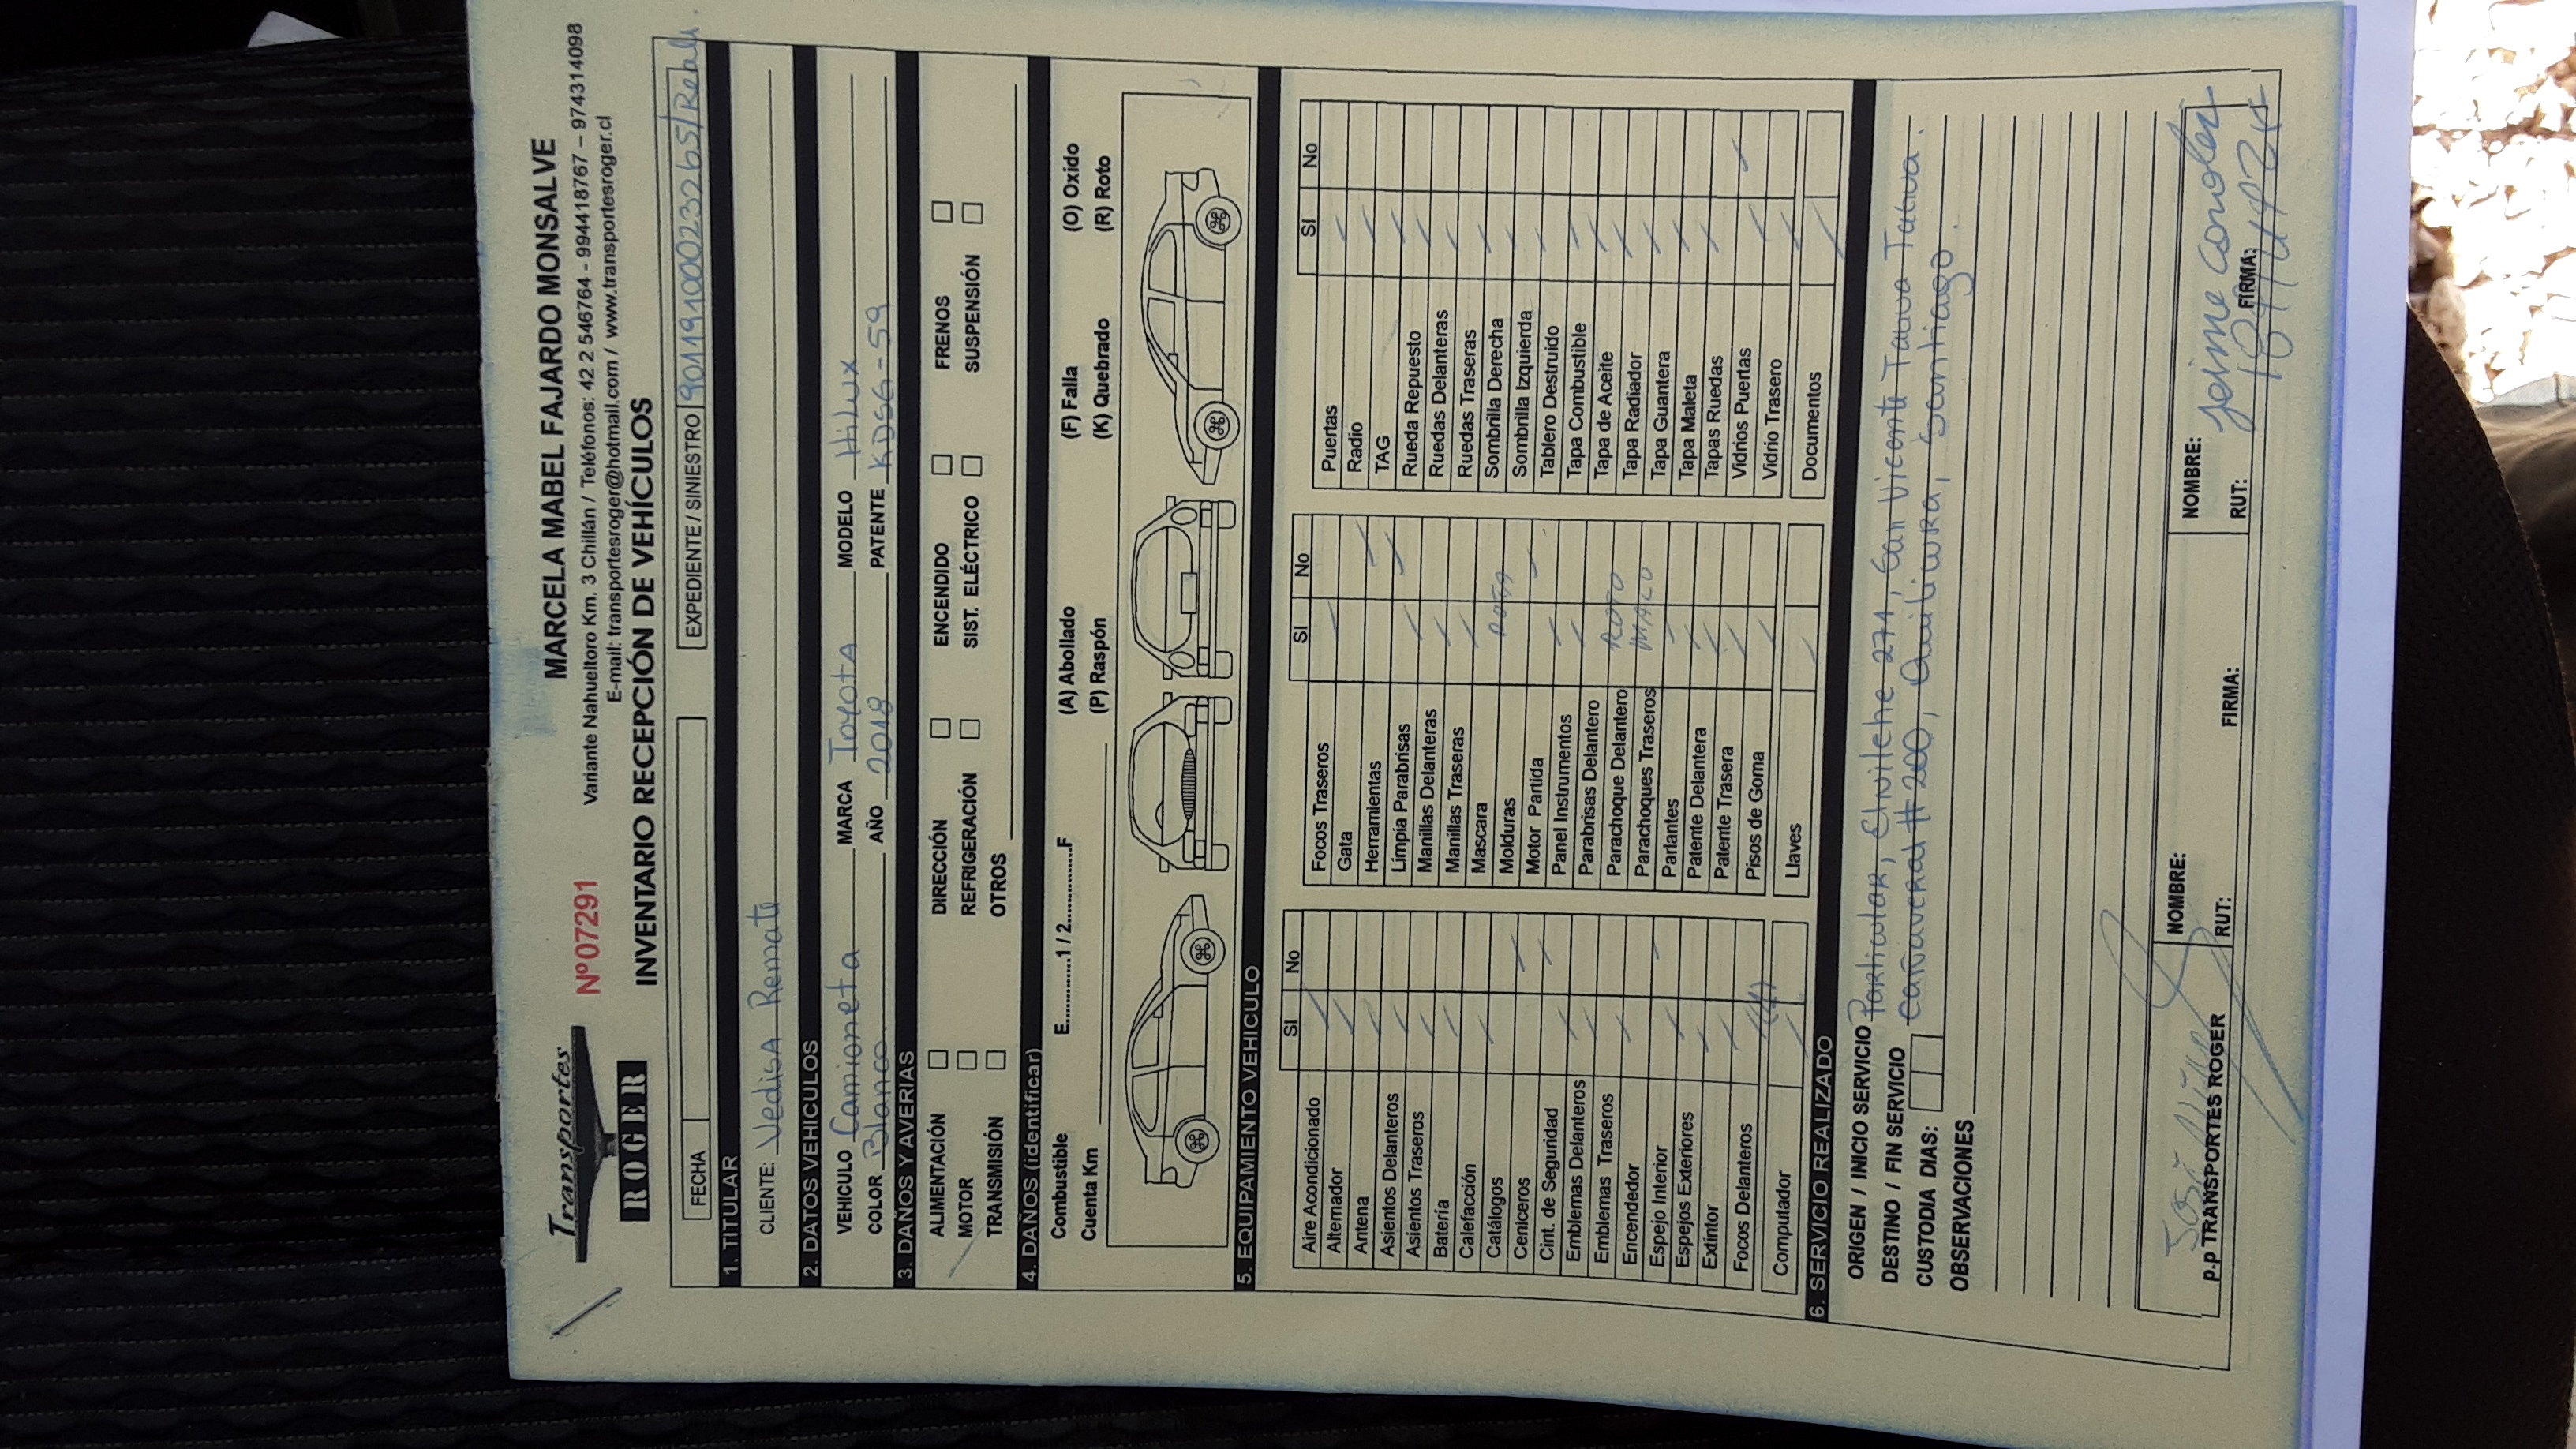 Transportes
ROGER
Nº 07291
MARCELA MABEL FAJARDO MONSALVE
Variante Nahueltoro Km. 3 Chillán / Teléfonos: 42 2 546764 - 994418767 – 974314098
E-mail: transportesroger@hotmail.com / www.transportesroger.cl
INVENTARIO RECEPCIÓN DE VEHÍCULOS
FECHA
EXPEDIENTE / SINIESTRO
1. TITULAR
CLIENTE: Vedisa Remate
2. DATOS VEHICULOS
VEHICULO Camioneta MARCA Toyota MODELO Hilux
COLOR Blanco AÑO 2018 PATENTE KDSG-59
3. DAÑOS Y AVERIAS
ALIMENTACIÓN DIRECCIÓN ENCENDIDO FRENOS
MOTOR REFRIGERACIÓN SIST. ELÉCTRICO SUSPENSIÓN
TRANSMISIÓN OTROS
4. DAÑOS (identificar)
Combustible E............1 / 2............F (A) Abollado (F) Falla (O) Oxido
Cuenta Km (P) Raspón (K) Quebrado (R) Roto
5. EQUIPAMIENTO VEHICULO
SI No
Aire Acondicionado
Alternador
Antena
Asientos Delanteros
Asientos Traseros
Batería
Calefacción
Catálogos
Ceniceros
Cint. de Seguridad
Emblemas Delanteros
Emblemas Traseros
Encendedor
Espejo Interior
Espejos Exteriores
Extintor
Focos Delanteros
Computador
SI No
Focos Traseros
Gata
Herramientas
Limpia Parabrisas
Manillas Delanteras
Manillas Traseras
Mascara
Molduras ROTA
Motor Partida
Panel Instrumentos
Parabrisas Delantero
Parachoque Delantero ROTO
Parachoques Traseros MALO
Parlantes
Patente Delantera
Patente Trasera
Pisos de Goma
Llaves
SI No
Puertas
Radio
TAG
Rueda Repuesto
Ruedas Delanteras
Ruedas Traseras
Sombrilla Derecha
Sombrilla Izquierda
Tablero Destruido
Tapa Combustible
Tapa de Aceite
Tapa Radiador
Tapa Guantera
Tapa Maleta
Tapas Ruedas
Vidrios Puertas
Vidrio Trasero
Documentos
6. SERVICIO REALIZADO
ORIGEN / INICIO SERVICIO Particular, 271, San Vicente Tagua Tagua.
DESTINO / FIN SERVICIO Cañaveral #200, Quilicura, Santiago.
CUSTODIA DIAS:
OBSERVACIONES
p.p TRANSPORTES ROGER
NOMBRE:
RUT: FIRMA:
NOMBRE:
RUT: FIRMA: